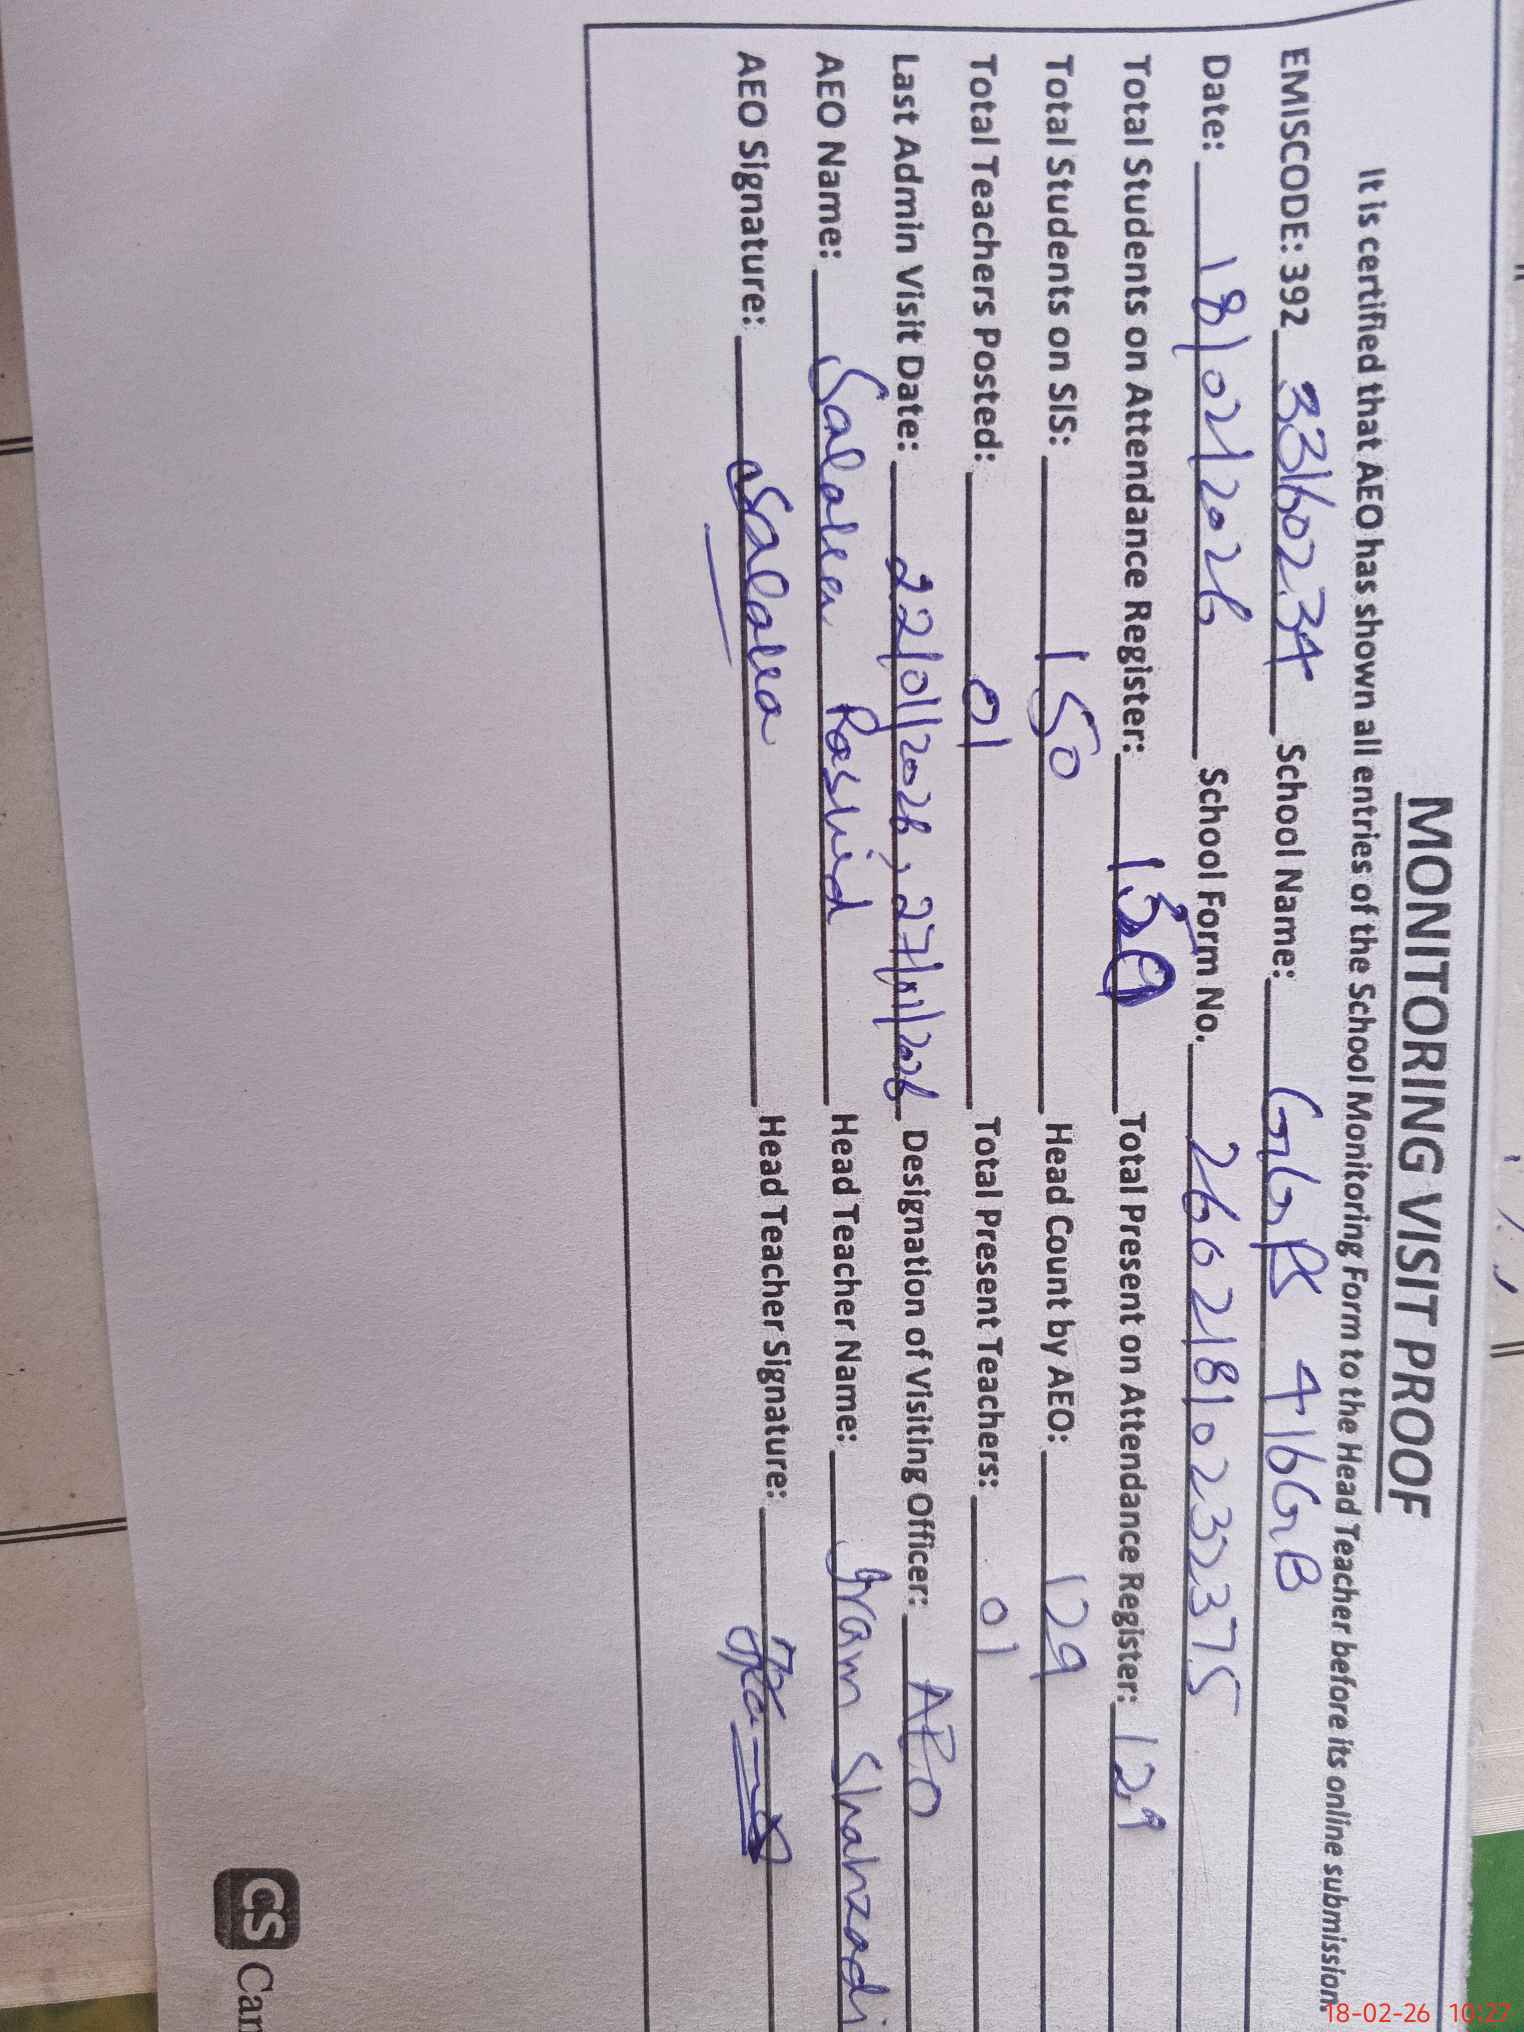 MONITORING VISIT PROOF
It is certified that AEO has shown all entries of the School Monitoring Form to the Head Teacher before its online submission.
EMISCODE: 392 33160234 School Name: GGPS 416GB
Date: 18/02/2026 School Form No. 26021810232375
Total Students on Attendance Register: 150 Total Present on Attendance Register: 129
Total Students on SIS: 150 Head Count by AEO: 129
Total Teachers Posted: 01 Total Present Teachers: 01
Last Admin Visit Date: 22/01/2026, 27/01/2026 Designation of Visiting Officer: AEO
AEO Name: Salalea Rashid Head Teacher Name: Iram Shahzadi
AEO Signature: Salalea Head Teacher Signature:
CS Can
18-02-26 10:27